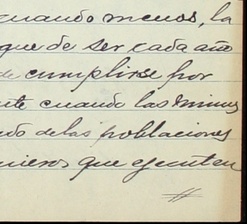 cuando menos, la
que de ser cada año
de cumplirse por
nte cuando las minas
do de las poblaciones
nieros que ejecuten